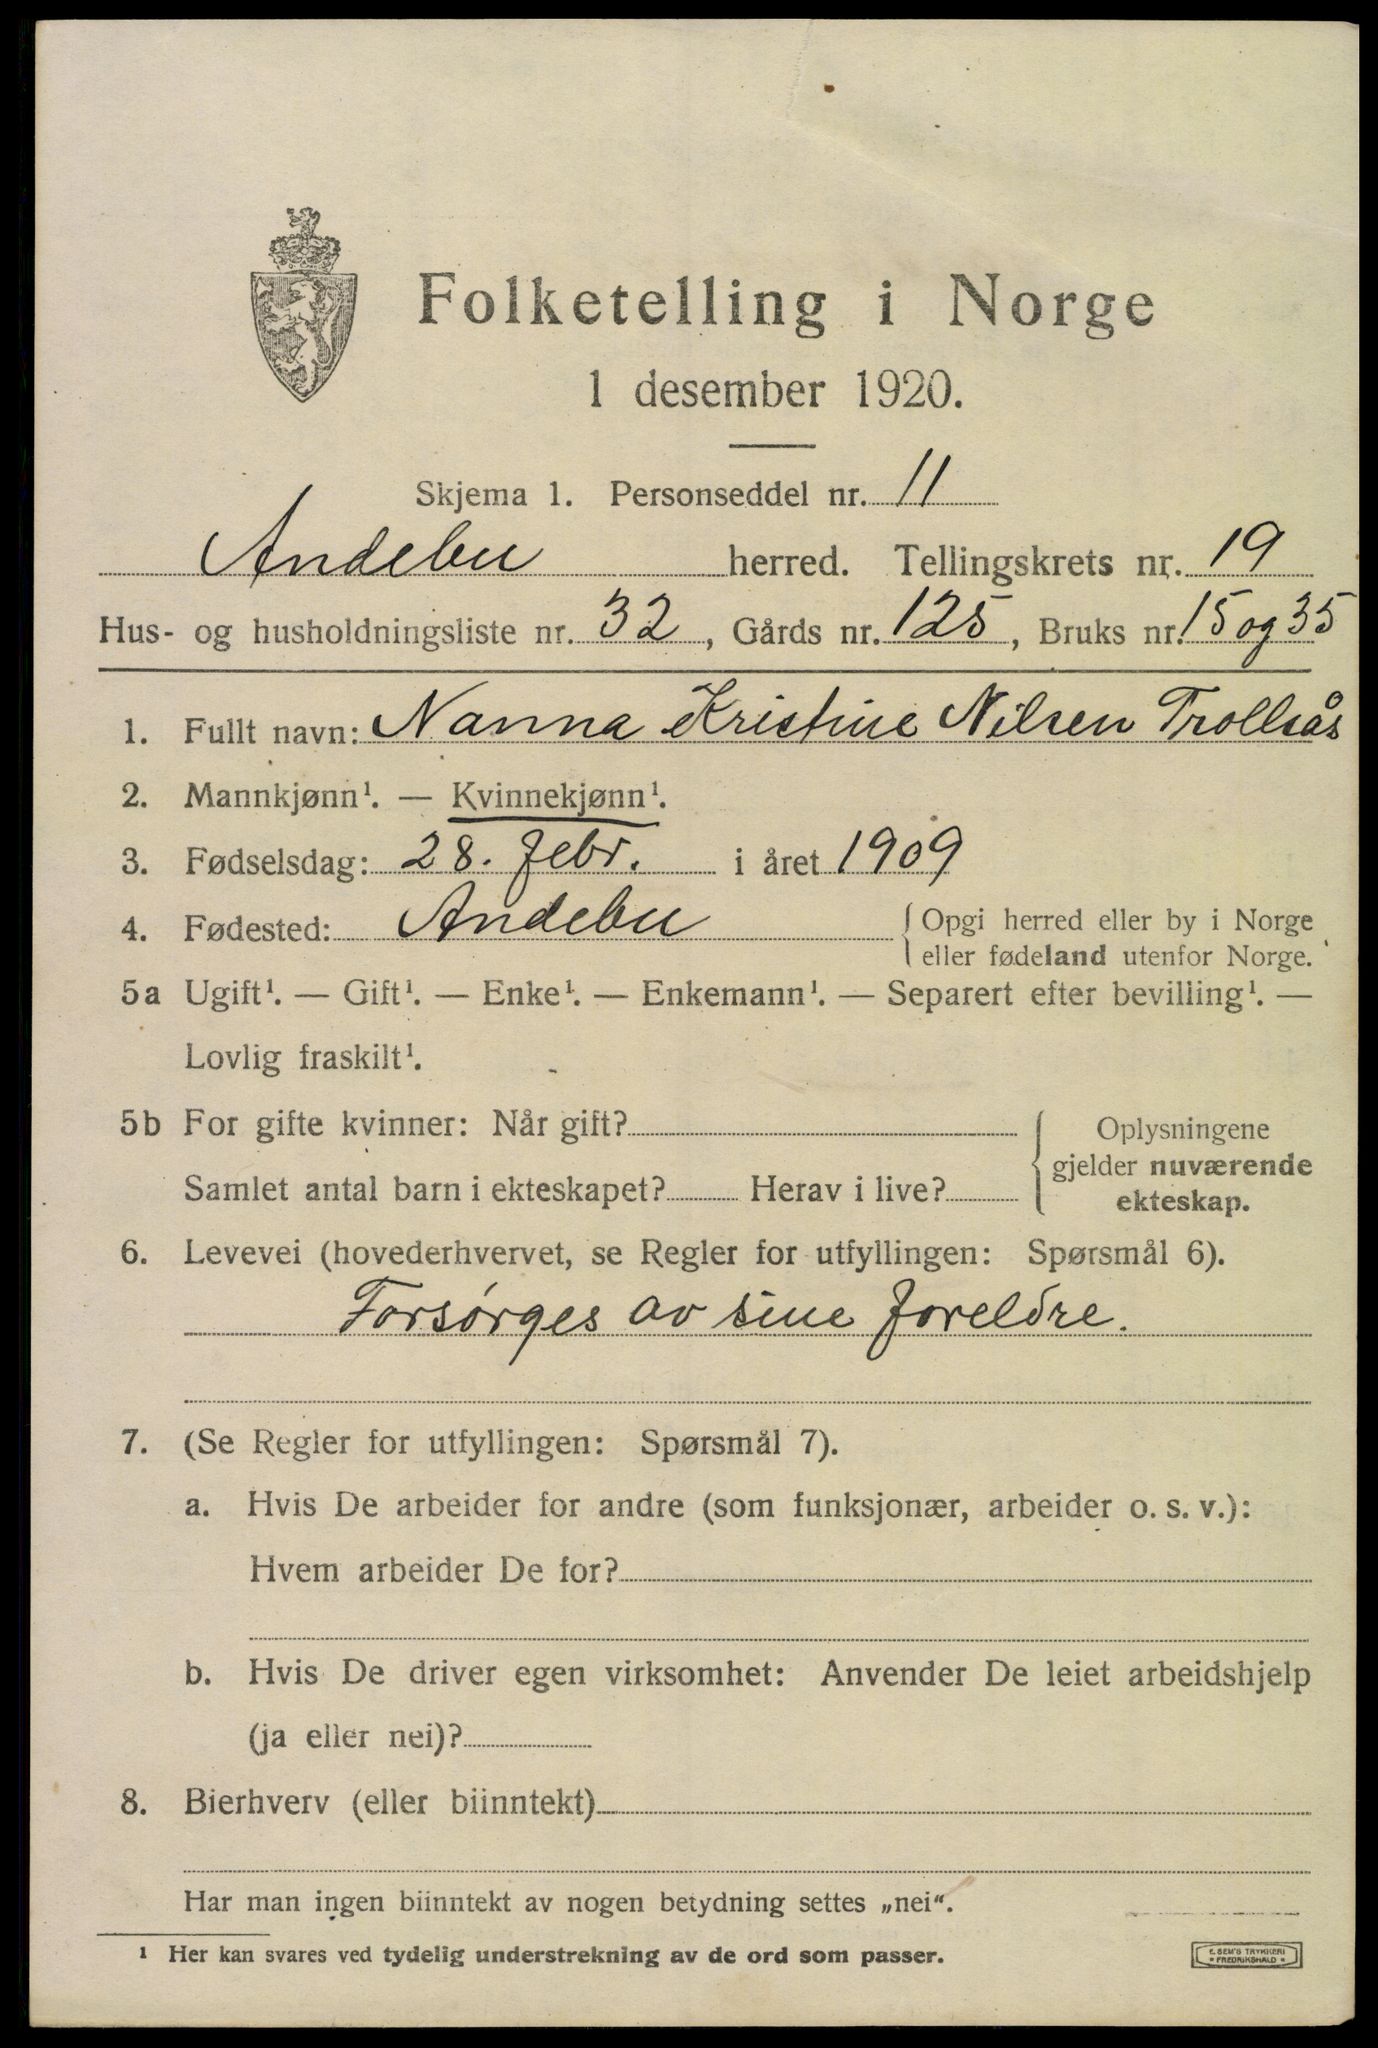 Folketelling i Norge
1 desember 1920.
Skjema 1. Personseddel nr. 11
Andebu herred. Tellingskrets nr. 19
Hus- og husholdningsliste nr. 32, Gårds nr. 125, Bruks nr. 15 og 35
1. Fullt navn: Nanna Kristine Nilsen Trollsås
2. Mannkjønn¹. — Kvinnekjønn¹.
3. Fødselsdag: 28. febr. i året 1909
4. Fødested: Andebu { Opgi herred eller by i Norge
eller fødeland utenfor Norge.
5a Ugift¹. — Gift¹. — Enke¹. — Enkemann¹. — Separert efter bevilling¹. —
Lovlig fraskilt¹.
5b For gifte kvinner: Når gift?
Samlet antal barn i ekteskapet? Herav i live?
Oplysningene
gjelder nuværende
ekteskap.
6. Levevei (hovederhvervet, se Regler for utfyllingen: Spørsmål 6).
Forsørges av sine foreldre.
7. (Se Regler for utfyllingen: Spørsmål 7).
a. Hvis De arbeider for andre (som funksjonær, arbeider o. s. v.):
Hvem arbeider De for?
b. Hvis De driver egen virksomhet: Anvender De leiet arbeidshjelp
(ja eller nei)?
8. Bierhverv (eller biinntekt)
Har man ingen biinntekt av nogen betydning settes „nei“.
¹ Her kan svares ved tydelig understrekning av de ord som passer.
E. SEM'S TRYKKERI
* FREDRIKSHALD *